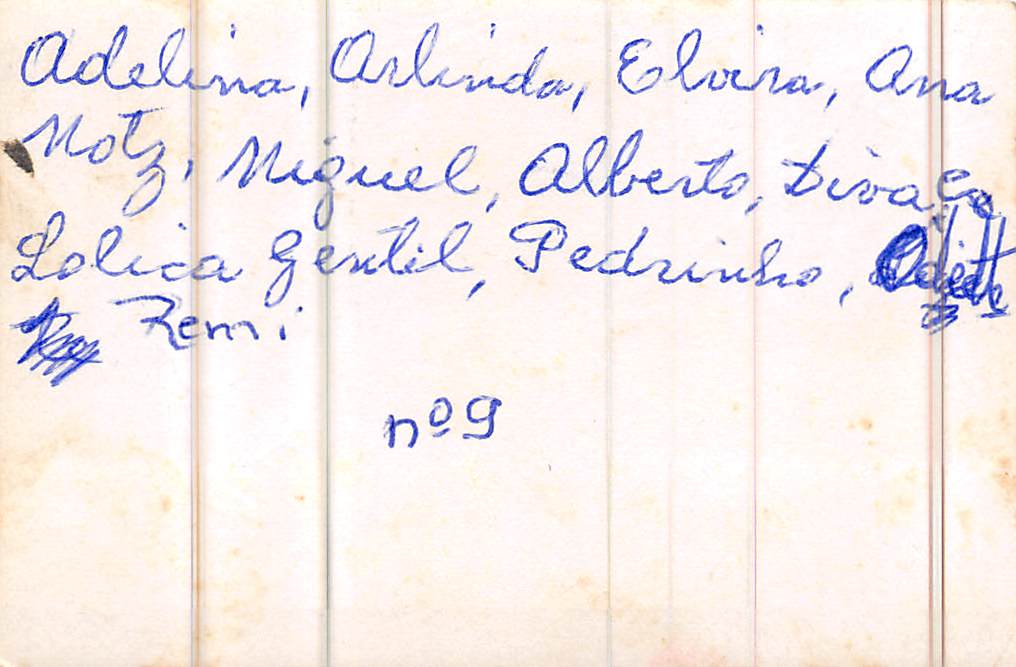 Adelina, Arlinda, Elvira, Ana
Motz, Miguel, Alberto, Diva,
Lolica Gentil, Pedrinho,
Remi
nº 9